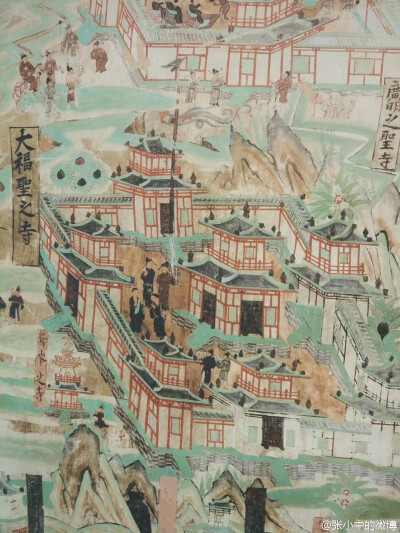 大福聖之寺
廣明之聖寺
之寺
@张小中的微博